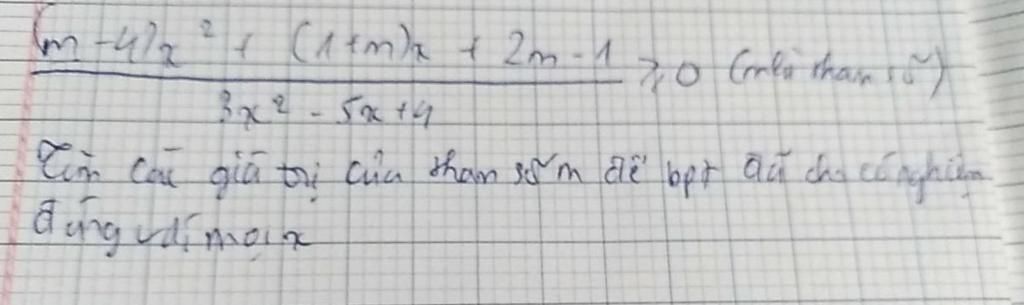 (m-4)x² + (1+m)x + 2m-1
3x² - 5x + 4
≥ 0 (m là tham số)
Tìm các giá trị của tham số m để bpt đã cho có nghiệm
đúng với mọi x